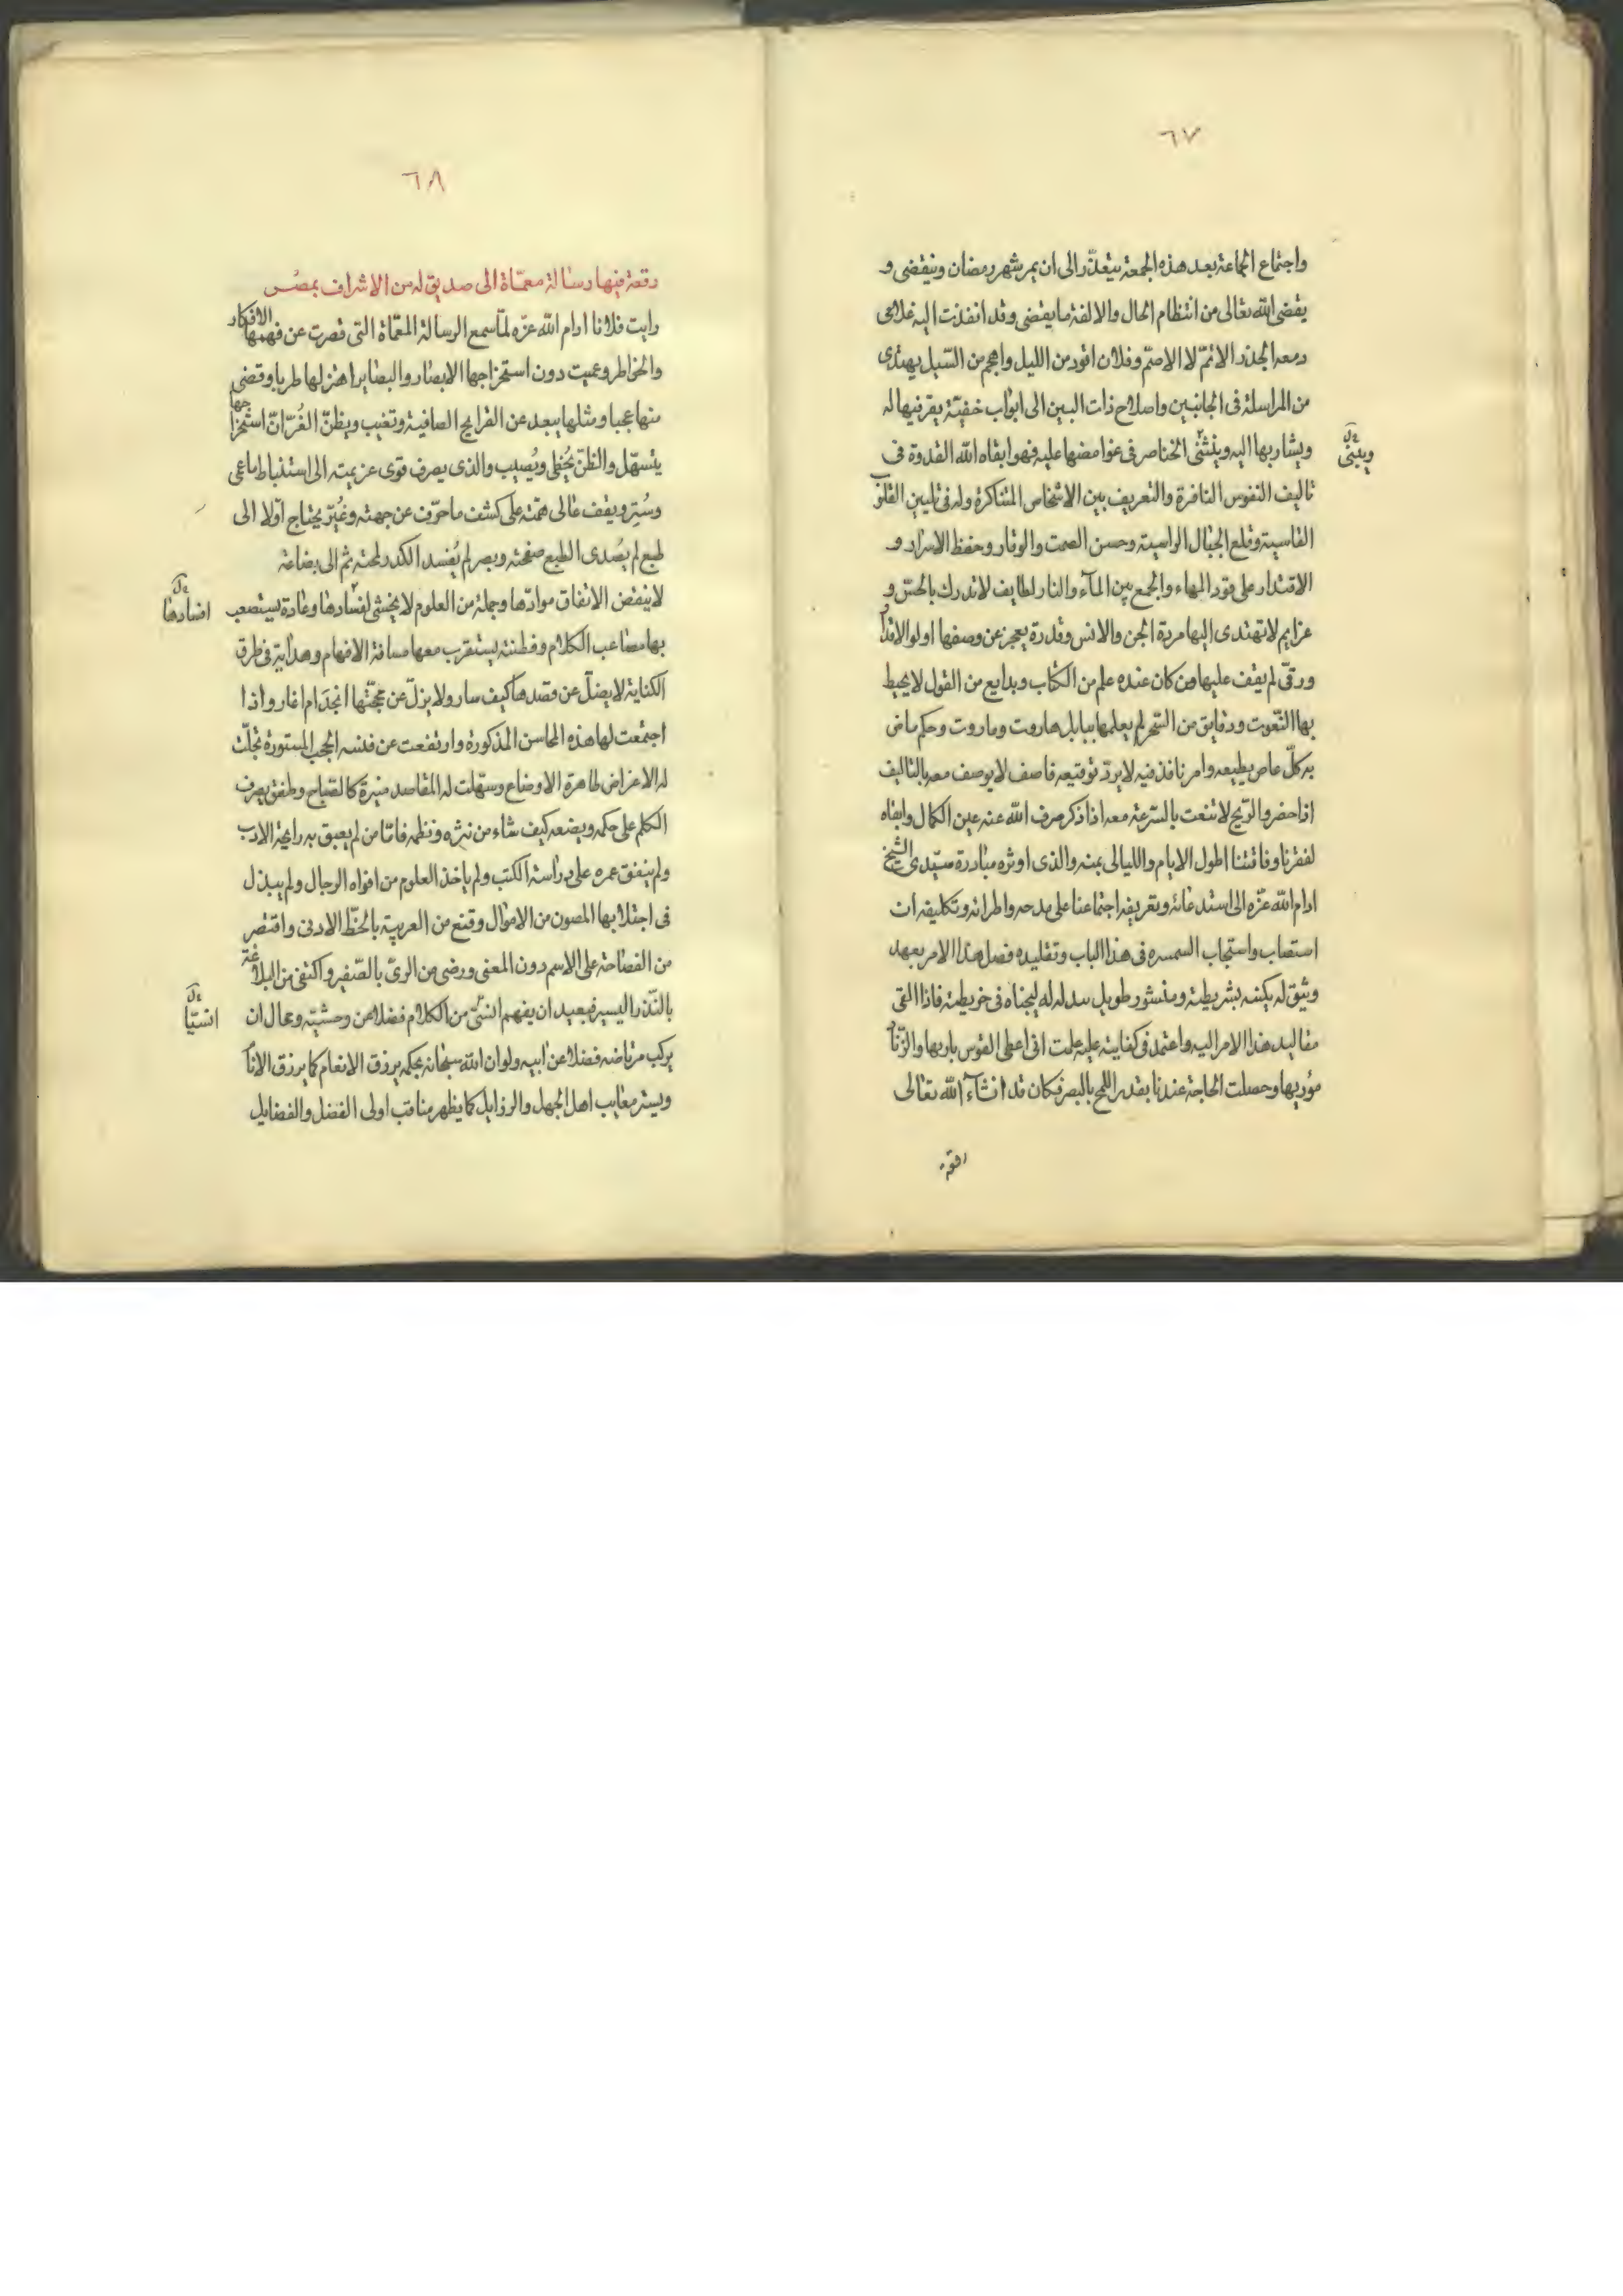 ٦٧
واجتماع الجماعة بعد هذه الجمعة يتعذّر الى ان يمر شهر رمضان وينقضى و
يقضى الله تعالى من انتظام الحال والالفة ما يقضى وقد انفذت اليه غلامى
ومعه الجذر الاتمّ لا الاصمّ وفلان اقود من الليل واهجم من السّيل يهتدى
من المراسلة فى الجانبين واصلاح ذات البين الى ابواب خفيّة يقرّ فيها له
ويشار بها اليه ويثنّى الخناصر فى غوامضها عليه فهو ابقاه الله القدوة فى
ويثنى
تاليف النفوس النافرة والتعريف بين الاشخاص المتناكرة وله فى تليين القلوب
القاسية وقلع الجبال الراسية وحسن الصمت والوقار وحفظ الاسرار و
الاقتدار على قود المهاء والجمع بين المآء والنار لطايف لا تدرك بالحسّ و
عزايم لا تهتدى اليها مردة الجن والانس وقدرة يعجز عن وصفها اولو الاقدار
ورقّى لم يقف عليها من كان عنده علم من الكتاب وبدايع من القول لا يحيط
بها النّعوت ودقايق من السّحر لم يعلمها ببابل هاروت وماروت وحكم ماض
به كلّ عاص يطيعه وامر نافذ فيه لا يردّ توقيعه فاصف لا يوصف معه بالتاليف
اذا حضر والرّيح لا تنعت بالسّرعة معه اذا ذكر صرف الله عنه عين الكمال وابقاه
لفقرنا وفاقتنا اطول الايام والليالى بمنه والذى اوثره مبادرة سيّدى الشيخ
ادام الله عزّه الى استدعائه وتعريفه اجتماعنا على مدحه واطرائه وتكليفه ان
استصاب واستجاب السمسره فى هذا الباب وتقليده فصل هذا الامر بعهد
وثيق له يكتبه بشريطته ومنشور طويل له ليجناه فى خريطته فاذا القى
مقاليد هذا الامر اليه واعتمد فى كفايته عليه علمت انى اعطى القوس باريها والزّناد
موريها وحصلت الحاجة عندنا بقدر اللمح بالبصر فكان قد ان شآء الله تعالى
رقعة
٦٨
رقعة فيها رسالة معمّاة الى صديق له من الاشراف بمصر
رايت فلانا ادام الله عزّه لمّا سمع الرسالة المعمّاة التى قصرت عن فهمها الافكار
والخواطر وعميت دون استخراجها الابصار والبصاير اهتز لها طربا وقضى
منها عجبا ومثلها يبعد عن القرايح الصافية وتغيب ويظنّ الغُرّ انّ استخراجها
يتسهّل والظنّ يُخطى ويُصيب والذى يصرف قوى عزيمته الى استنباط ما عمى
وسُتر ويقف عالى همته على كشف ما حرّف عن جهته وغُيّر يحتاج اوّلا الى
طبع لم يُصدى الطبع صفحته وبصر لم يُفسد الكدر لمحته ثم الى بضاعة
لا ينقض الانفاق موادّها وجملة من العلوم لا يخشى لفسادها وعادة يستصعب
افسادها
بها مصاعب الكلام وفطنة يستقرب معها مسافة الافهام وهداية فى طرق
الكناية لا يضلّ عن قصدها كيف سار ولا يزلّ عن محجّتها انجد ام اغار واذا
اجتمعت لها هذه المحاسن المذكورة وارتفعت عن نفسه الحجب المستورة تجلّت
له الاغراض ظاهرة الاوضاع وسهّلت له المقاصد منيرة كالصّباح وطفق يصرف
الكلم على حكمه ويضعه كيف شاء من نثره ونظمه فامّا من لم يعبق به رايحة الادب
ولم ينفق عمره على دراسة الكتب ولم ياخذ العلوم من افواه الرجال ولم يبذل
فى اجتلابها المصون من الاموال وقنع من العربية بالحظّ الادنى واقتصر
من الفصاحة على الاسم دون المعنى ورضى من الرىّ بالصّفير واكتفى من البلاغة
بالنّذر اليسير فبعيد ان يفهم انسّى من الكلام فضلا من وحشيّه ومحال ان
انسيّا
يركب مرتاضه فضلا عن ابيه ولو ان الله سبحانه بحكمه يرزق الانعام كما يرزق الانام
ويستر معايب اهل الجهل والرذايل كما يظهر مناقب اولى الفضل والفضايل